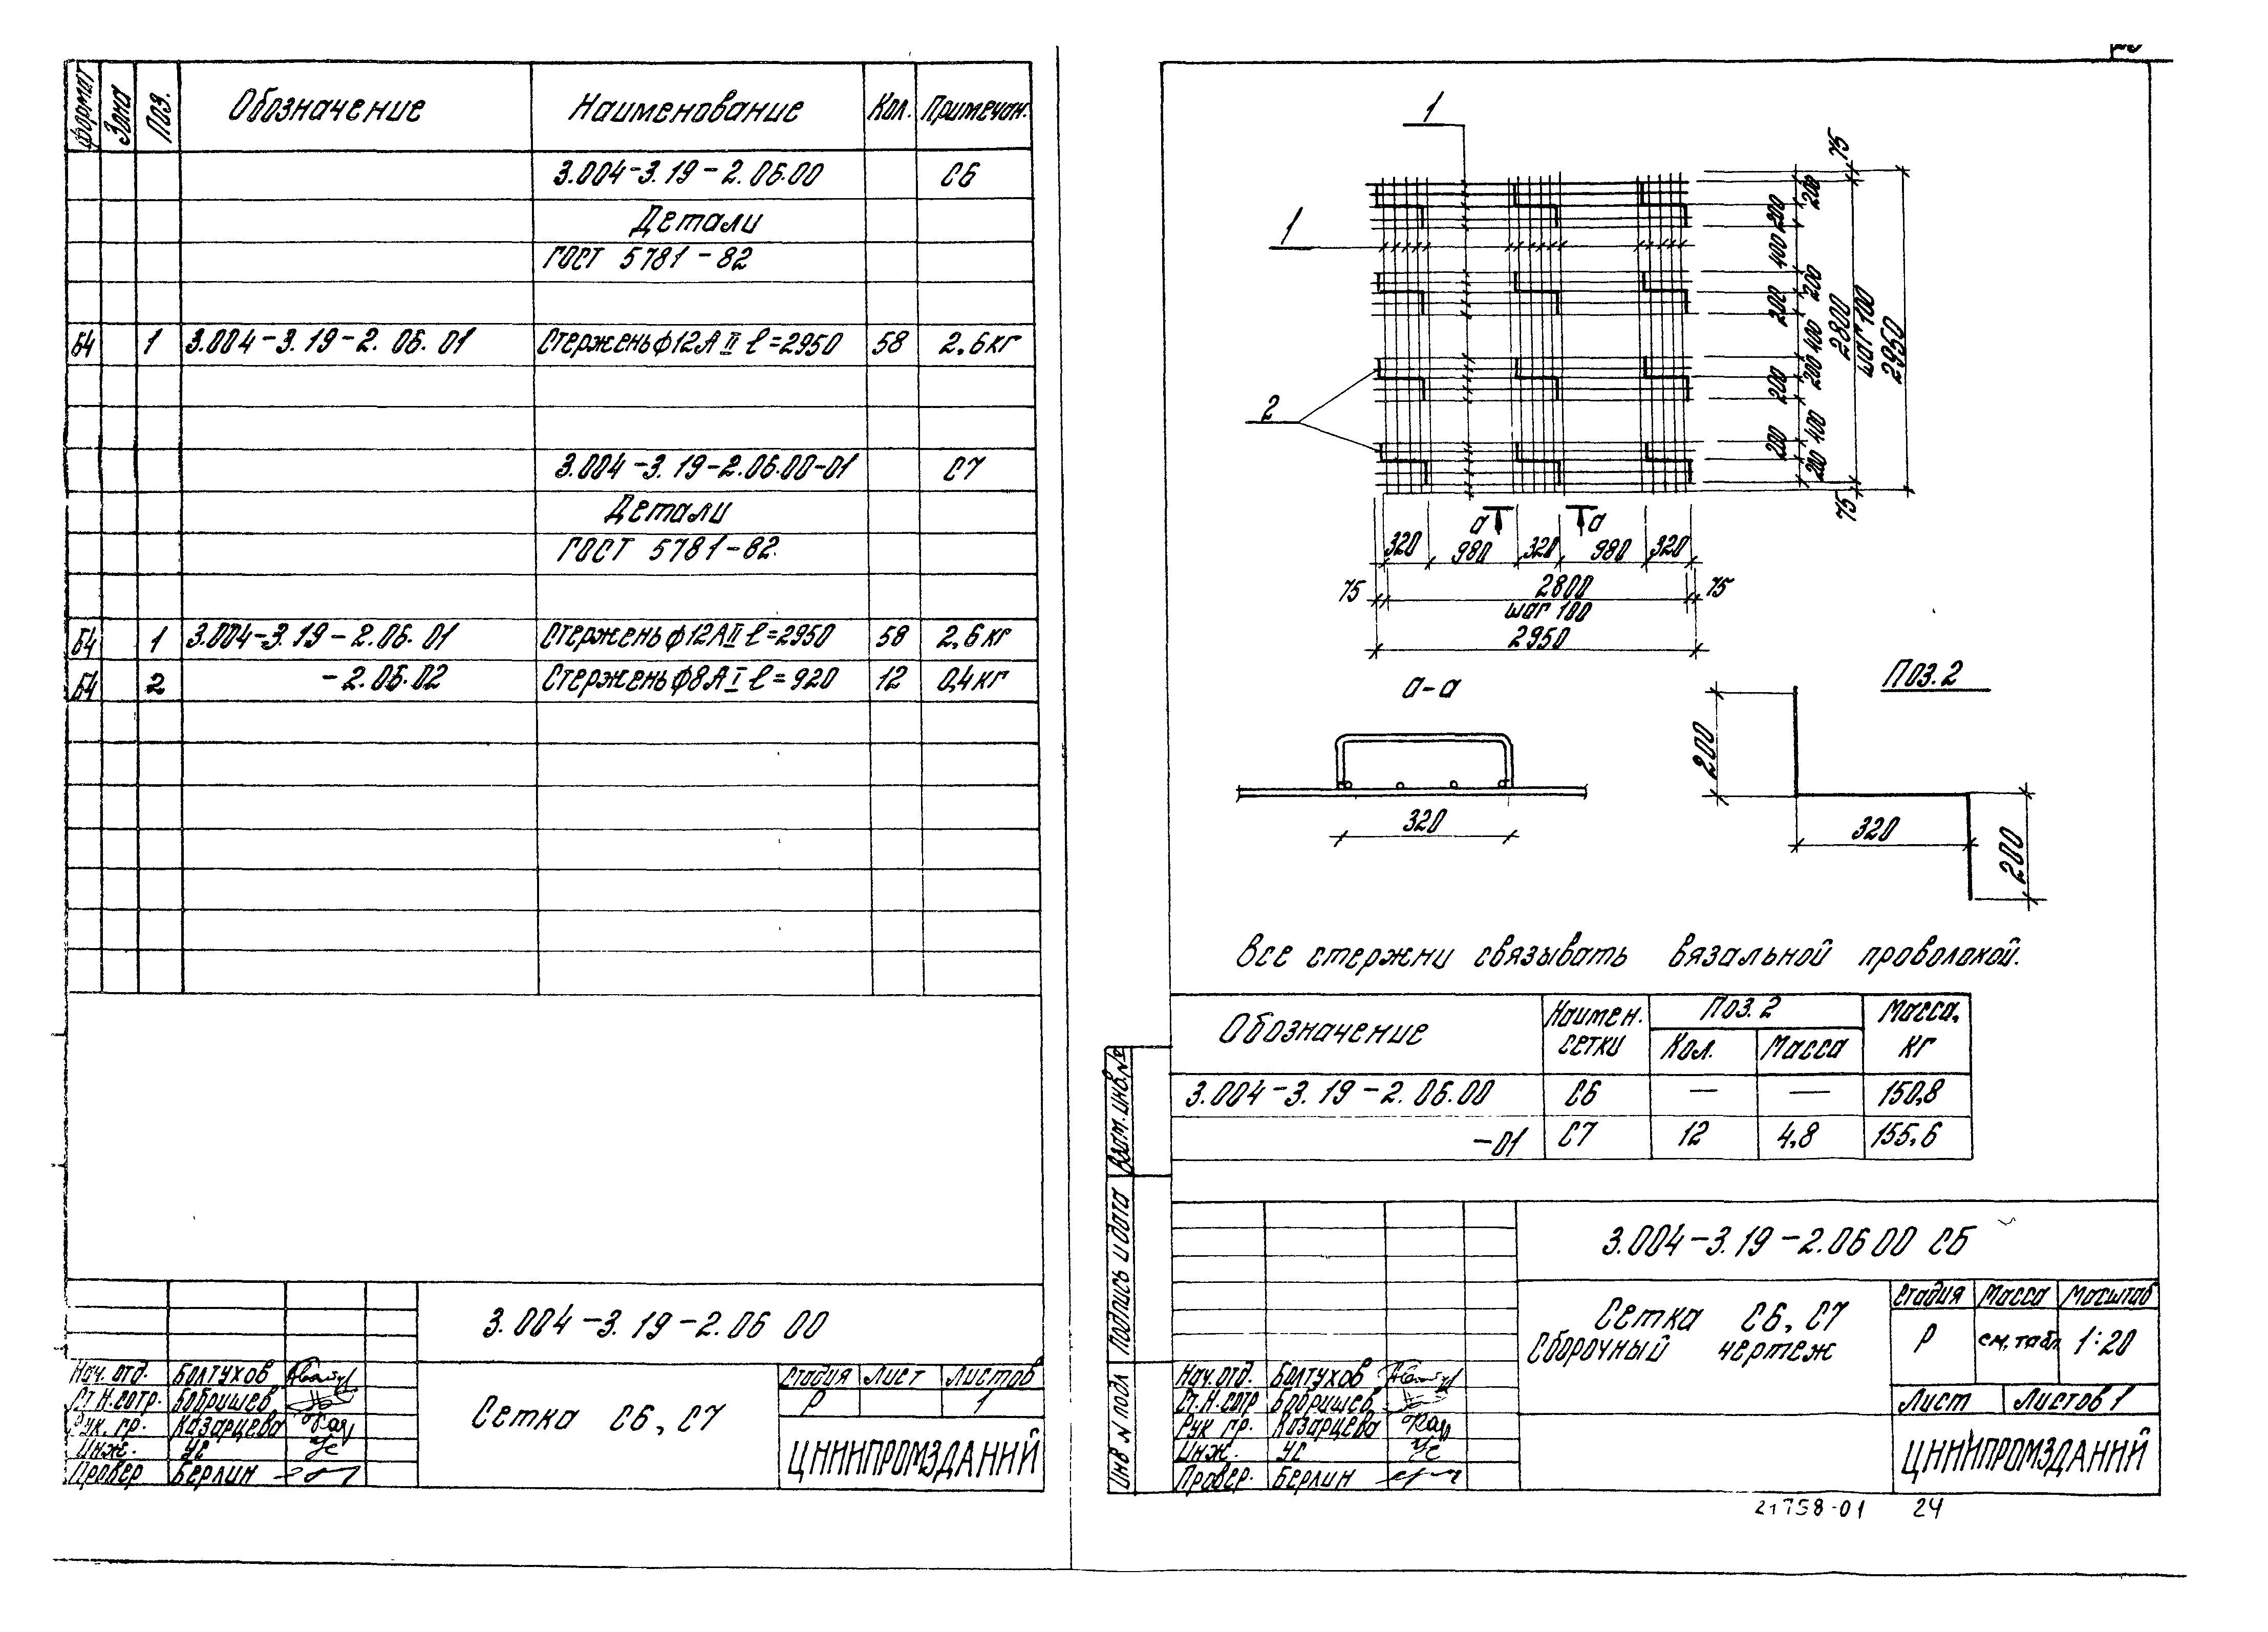 формат Зона Поз. Обозначение Наименование Кол. Примечан.
3.004-3.19-2.06.00 С6
Детали
ГОСТ 5781-82
Б4 1 3.004-3.19-2.06.01 Стержень ф12АII ℓ=2950 58 2,6кг
3.004-3.19-2.06.00-01 С7
Детали
ГОСТ 5781-82.
Б4 1 3.004-3.19-2.06.01 Стержень ф12АII ℓ=2950 58 2,6кг
Б4 2 -2.06.02 Стержень ф8АI ℓ=920 12 0,4кг
3.004-3.19-2.06 00
Нач. отд. Болтухов
Ст.Н.сотр. Бобришев
Рук. гр. Казарцева
Инж. Ус
Провер Берлин
Сетка С6, С7
Стадия Лист Листов
Р 1
ЦНИИПРОМЗДАНИЙ
1
1
2
75
200
200
400
200
200
400
200
200
400
200
200
75
2800
шаг 100
2950
а а
320 980 320 980 320
75 2800 75
шаг 100
2950
а-а
320
Поз. 2
200
320
200
Все стержни связывать вязальной проволокой.
Обозначение Наимен. сетки Поз. 2 Масса, кг
Кол. Масса
3.004-3.19-2.06.00 С6 — — 150,8
-01 С7 12 4,8 155,6
Взам. инв. №
Подпись и дата
Инв N подл
3.004-3.19-2.06 00 СБ
Сетка С6, С7
Сборочный чертеж
Стадия Масса Масштаб
Р см. табл 1:20
Лист Листов 1
Нач. отд. Болтухов
Ст.Н.сотр Бобришев
Рук гр. Казарцева
Инж. Ус
Провер. Берлин
ЦНИИПРОМЗДАНИЙ
21758-01 24